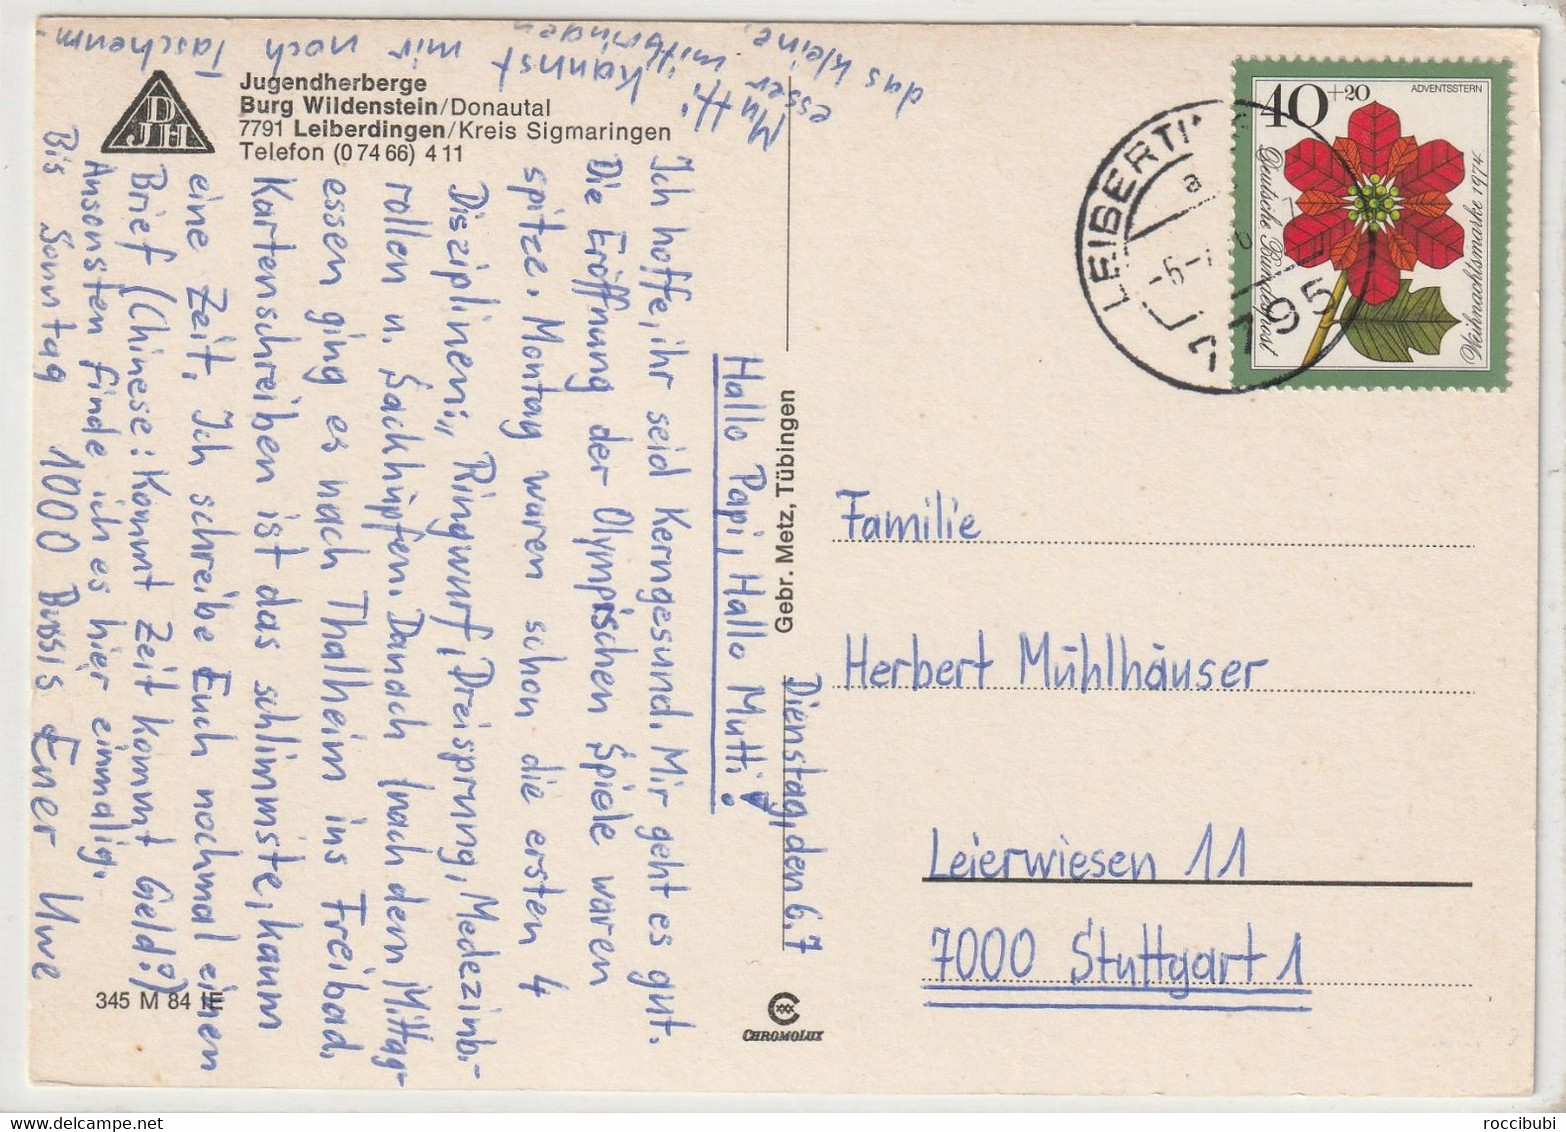 Jugendherberge
Burg Wildenstein/Donautal
7791 Leiberdingen/Kreis Sigmaringen
Telefon (0 74 66) 4 11
DJH
Dienstag, den 6.7
Hallo Papi, Hallo Mutti!
Ich hoffe, ihr seid Kerngesund. Mir geht es gut.
Die Eröffnung der Olympischen Spiele waren
spitze. Montag waren schon die ersten 4
Disziplinen: Ringwurf, Dreisprung, Medezinb.-
rollen u. Sackhüpfen. Danach (nach dem Mittag-
essen ging es nach Thalheim ins Freibad.
Kartenschreiben ist das schlimmste, kaum
eine Zeit. Ich schreibe Euch nochmal einen
Brief (Chinese: Kommt Zeit kommt Geld?)
Ansonsten finde ich es hier einmalig.
Bis Sonntag 1000 Bussis Euer Uwe
Mutti kannst mir noch Taschenm-
esser mitbringen
das kleine.
345 M 84 IE
Gebr. Metz, Tübingen
CHROMOLUX
40+20
ADVENTSSTERN
Deutsche Bundespost
Weihnachtsmarke 1974
LEIBERTI
a
-6.-7
7795
Familie
Herbert Mühlhäuser
Leierwiesen 11
7000 Stuttgart 1
roccibubi